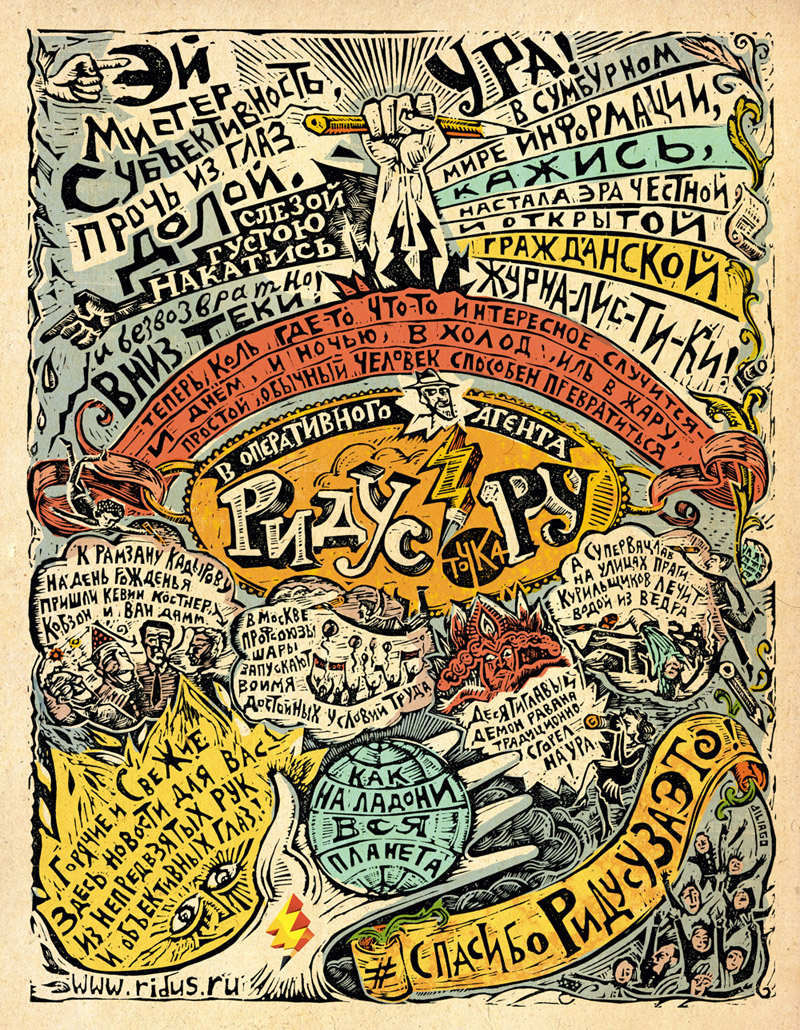 ЭЙ
МИСТЕР
СУБЪЕКТИВНОСТЬ,
ПРОЧЬ ИЗ ГЛАЗ
ДОЛОЙ.
СЛЕЗОЙ
ГУСТОЮ
НАКАТИСЬ
И безвозвратно
ВНИЗ ТЕКИ!
УРА!
В СУМБУРНОМ
МИРЕ ИНФОРМАЦИИ,
КАЖИСЬ,
НАСТАЛА ЭРА ЧЕСТНОЙ
И ОТКРЫТОЙ
ГРАЖДАНСКОЙ
ЖУРНА-ЛИС-ТИ-КИ!
ТЕПЕРЬ, КОЛЬ ГДЕ-ТО ЧТО-ТО ИНТЕРЕСНОЕ СЛУЧИТСЯ
И ДНЁМ, И НОЧЬЮ, В ХОЛОД, ИЛЬ В ЖАРУ,
ПРОСТОЙ, ОБЫЧНЫЙ ЧЕЛОВЕК СПОСОБЕН ПРЕВРАТИТЬСЯ
В ОПЕРАТИВНОГО АГЕНТА
РИДУС ТОЧКА РУ
К РАМЗАНУ КАДЫРОВУ
НА ДЕНЬ РОЖДЕНЬЯ
ПРИШЛИ КЕВИН КОСТНЕР,
КОБЗОН И ВАН ДАММ.
В МОСКВЕ
ПРОФСОЮЗЫ
ШАРЫ
ЗАПУСКАЮТ
ВО ИМЯ
ДОСТОЙНЫХ УСЛОВИЙ ТРУДА
ДЕСЯТИГЛАВЫЙ
ДЕМОН РАВАНА
ТРАДИЦИОННО
СГОРЕЛ
НА УРА
А СУПЕРВАЦЛАВ
НА УЛИЦАХ ПРАГИ
КУРИЛЬЩИКОВ ЛЕЧИТ
ВОДОЙ ИЗ ВЕДРА
ГОРЯЧИЕ И СВЕЖИЕ
ЗДЕСЬ НОВОСТИ ДЛЯ ВАС
ИЗ НЕПРЕДВЗЯТЫХ РУК
И ОБЪЕКТИВНЫХ ГЛАЗ!
КАК
НА ЛАДОНИ
ВСЯ
ПЛАНЕТА
#СПАСИБО РИДУСУ ЗА ЭТО!
www.ridus.ru